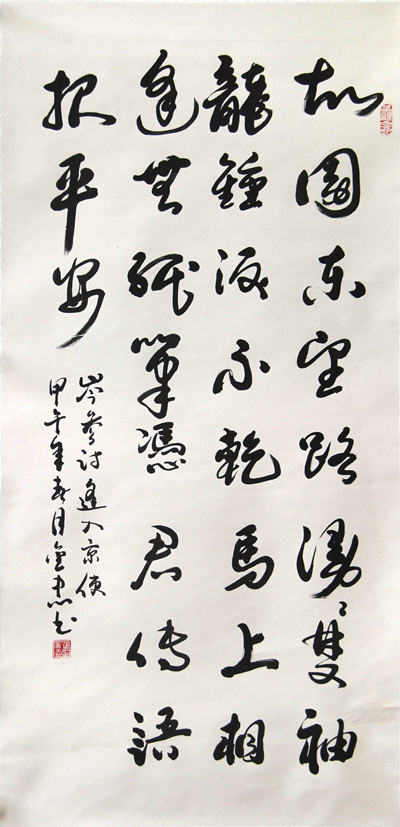 故園東望路漫〻雙袖
龍鍾淚不乾馬上相
逢無紙筆憑君傳語
報平安
岑參詩逢入京使
甲午年春月金忠书